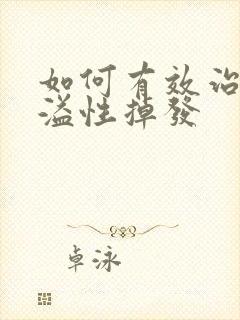 如何有效治
溢性掉發
卓泳